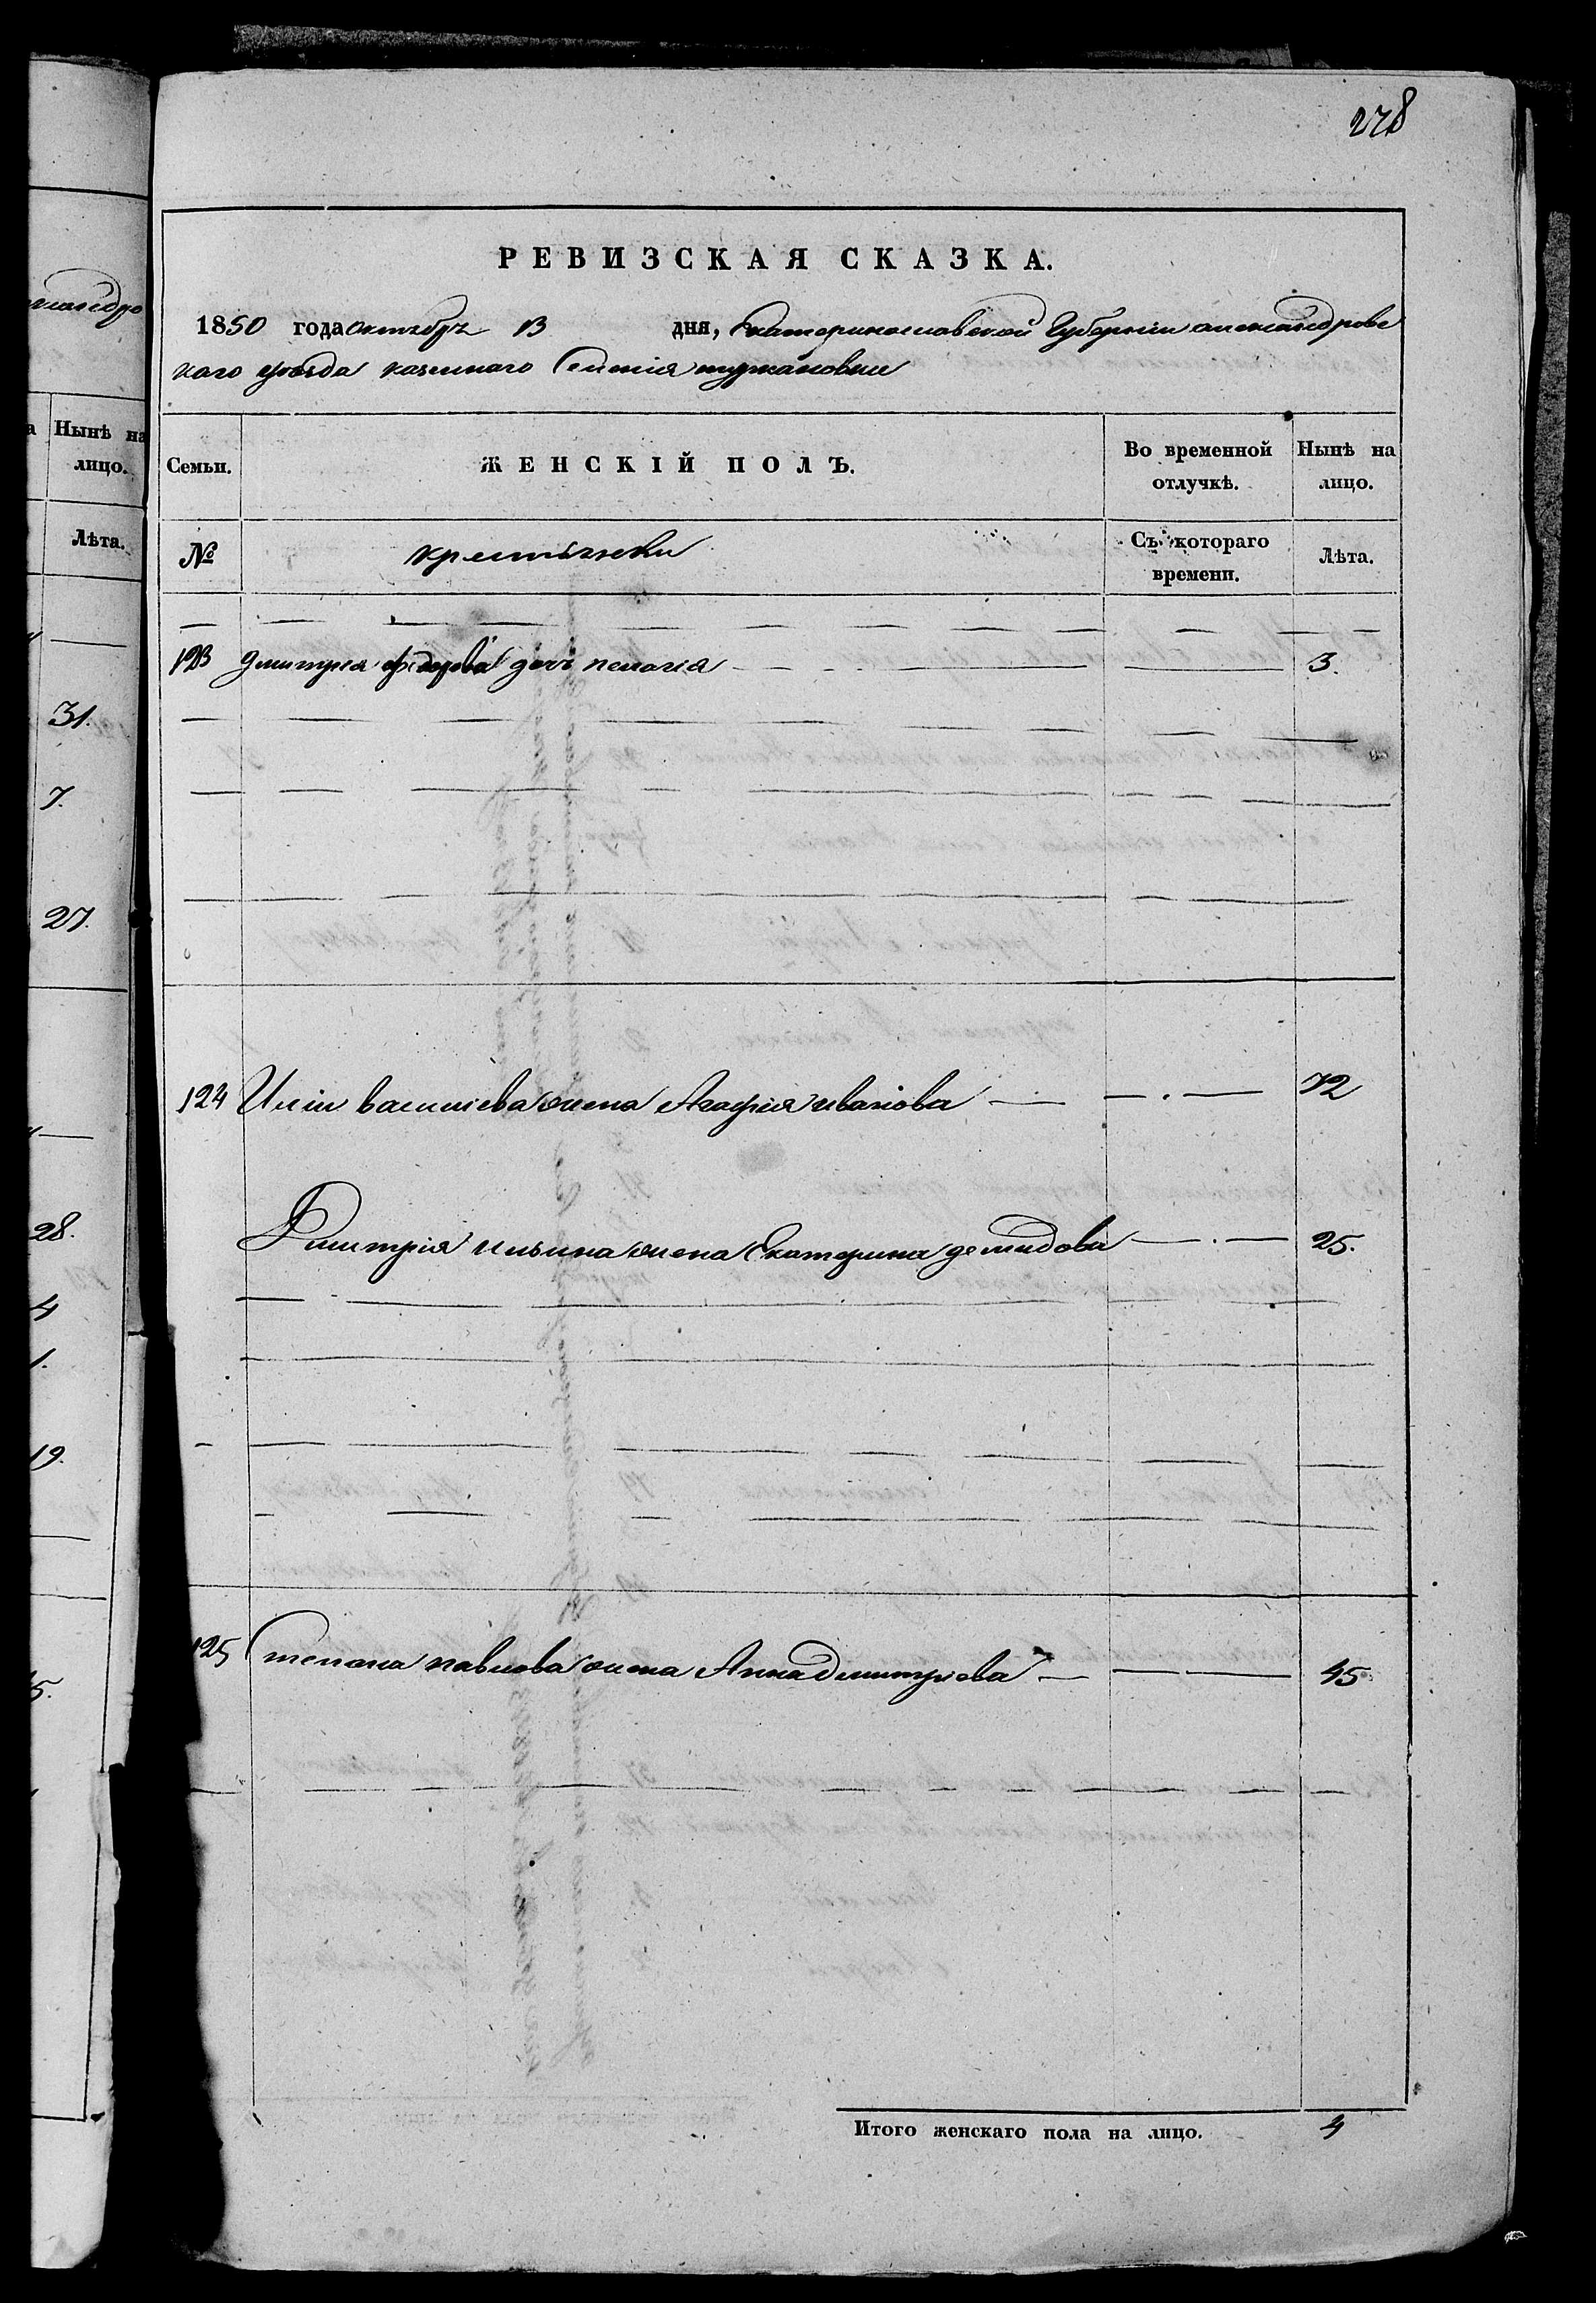 278
РЕВИЗСКАЯ СКАЗКА.
1850 года октября 13 дня, Екатеринославской Губерніи александровс
каго уезда казеннаго Селенія туркановки
Семьи. ЖЕНСКІЙ ПОЛЪ. Во временной отлучкѣ. Нынѣ на лицо.
№ крестьянки Съ котораго времени. Лѣта.
123 Дмитрия федорова дочь пелагия 3.
124 Илии васильева жена Агафия иванова 72
Димитрия ильина жена Екатерина демидова 25.
125 Степана павлова жена Анна дмитриева 45
Итого женскаго пола на лицо. 4
Нынѣ на
лицо.
Лѣта.
31.
7.
27.
28.
4
1.
19.